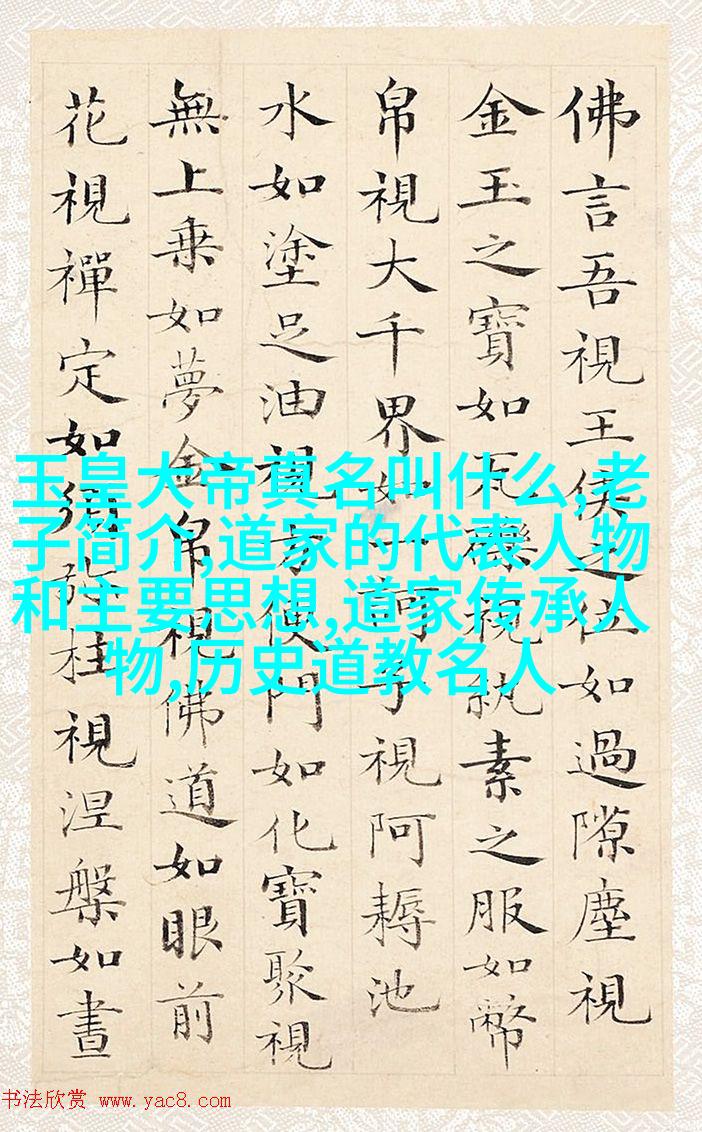 佛言吾視王侯之位如過隙塵視
金玉之寶如瓦礫視紈素之服如幣
帛視大千界如一訶子視阿耨池
水如塗足油視方便門如化寶聚視
無上乗如夢金帛視佛道如眼前
花視禪定如須弥柱視涅槃如晝
玉皇大帝真名叫什么,老
子简介,道家的代表人物
和主要思想,道家传承人
物,历史道教名人
书法欣赏 www.yac8.com